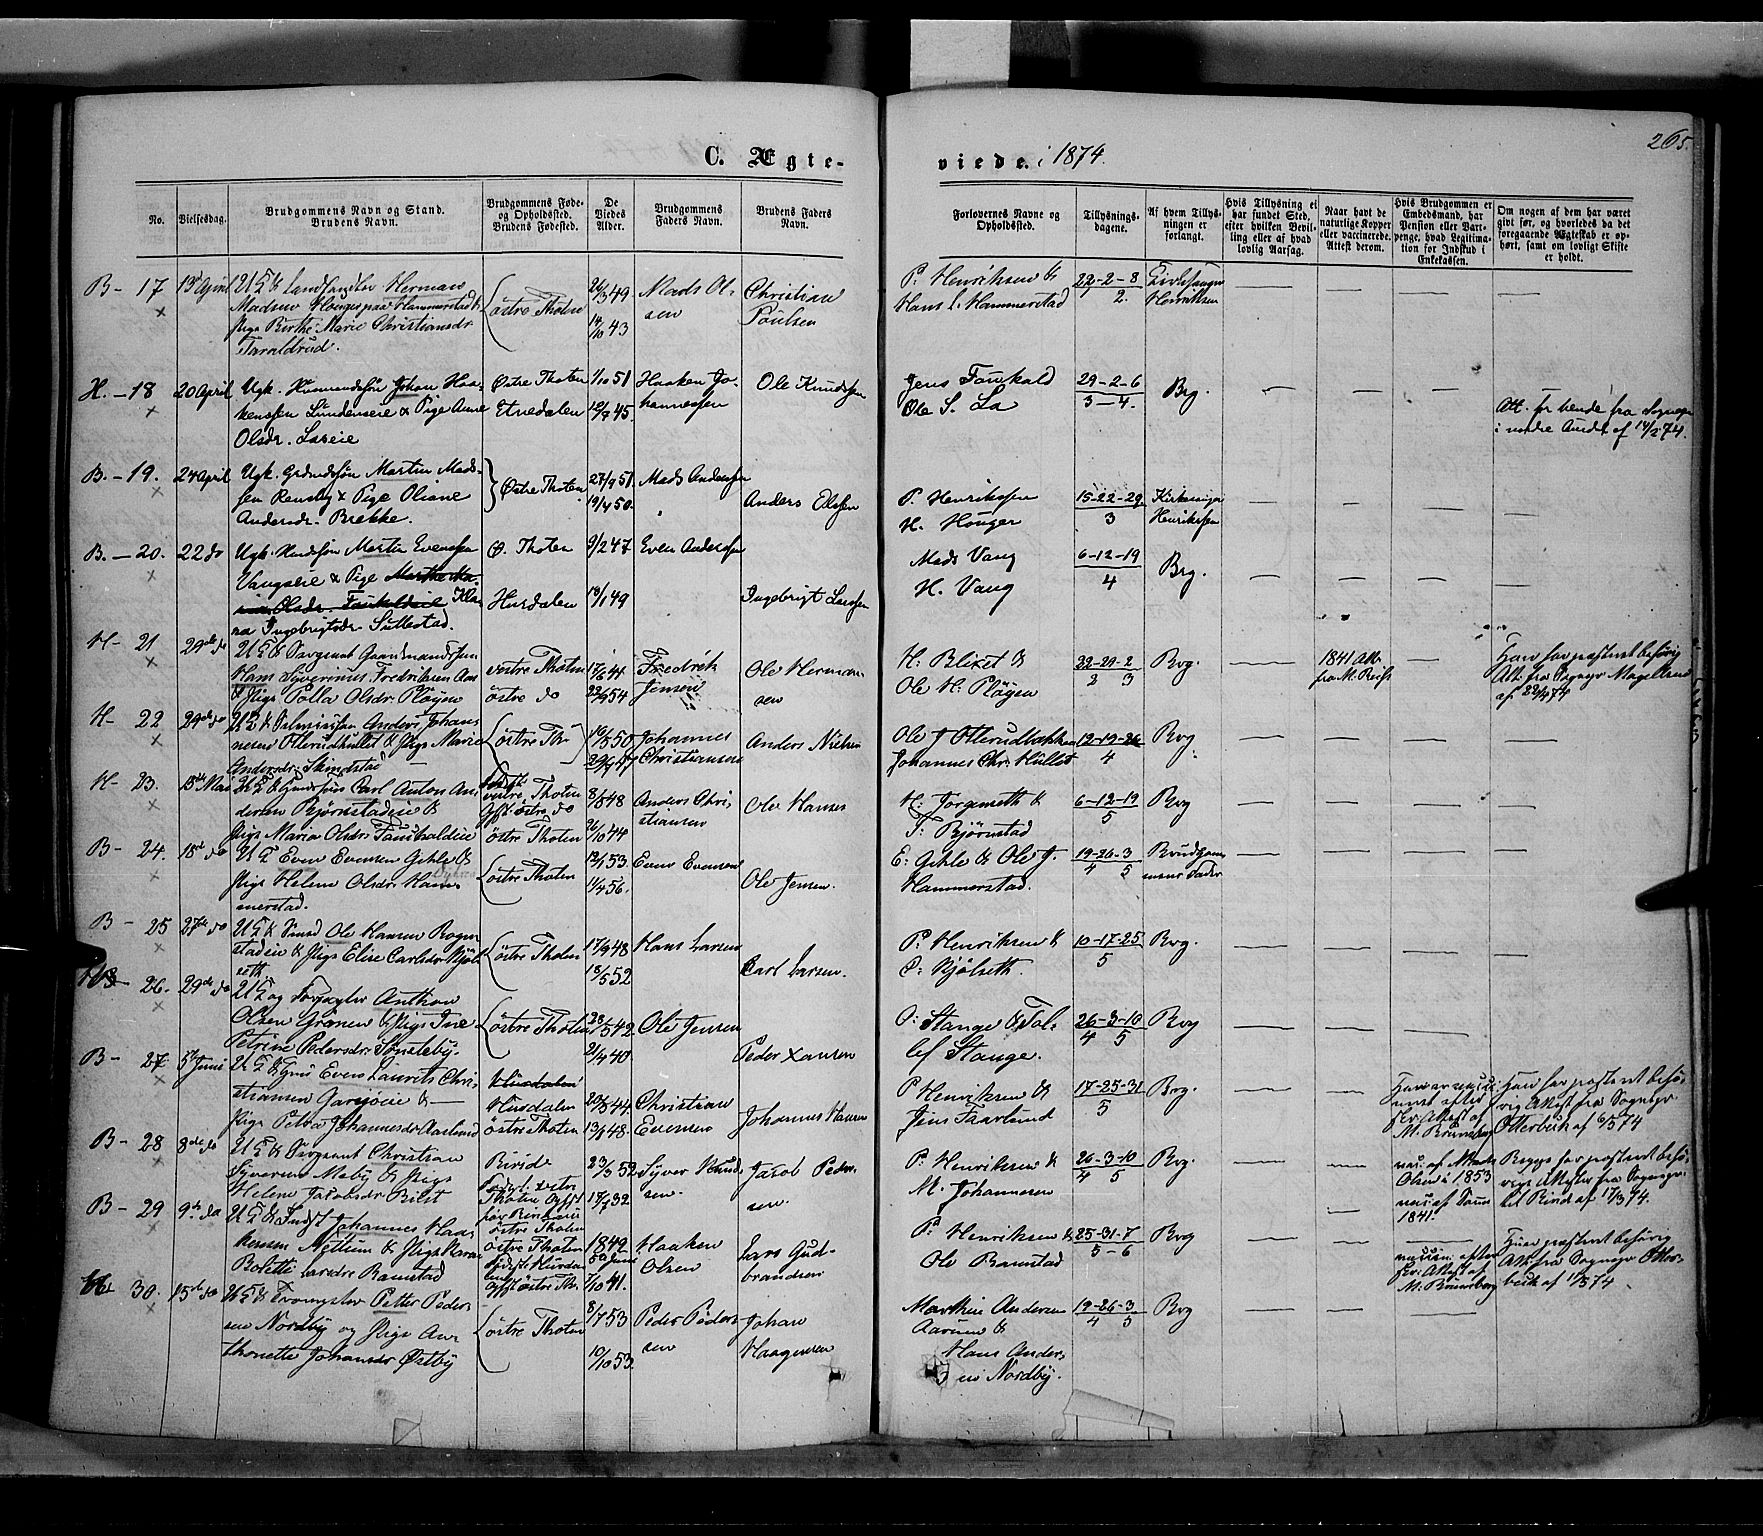 265.
C. Ægte-
viede. i 1874.
No.
Vielsesdag.
Brudgommens Navn og Stand.
Brudens Navn.
Brudgommens Føde-
og Opholdsted.
Brudens Fødested.
De
Viedes
Alder.
Brudgommens
Faders Navn.
Brudens Faders
Navn.
Forlovernes Navne og
Opholdssted.
Tillysnings-
dagene.
Af hvem Tillys-
ningen er
forlangt.
Hvis Tillysning ei
har fundet Sted,
efter hvilken Bevil-
ling eller af hvad
lovlig Aarsag.
Naar havt de
naturlige Kopper
eller vaccinerede.
Attest derom.
Hvis Brudgommen er
Embedsmand, har
Pension eller Vart-
penge, hvad Legitima-
tion for Indskud i
Enkekassen.
Om nogen af dem har været
givt før, og hvorledes da det
foregaaende Ægteskab er op-
hørt, samt om lovligt Skifte
er holdt.
B - 17 13 April
Herman
Madsen paa Hammerstad &
Pige Birthe Marie Christiansdr
Taraldrud.
Østre Thoten
26/3 49
14/10 43
Mads Ol-
sen
Christian
Poulsen
P. Henriksen &
Hans L. Hammerstad
22-2-8
2.
Kirkesanger
Henriksen
H. - 18 20 April
Ugk. Huusmandssøn Johan Haa-
kenssen Lundenseie & Pige Anne
Olsdr. Laeie
Østre Thoten
Etnedalen
1/10 51
12/7 45.
Haaken Jo-
hannessen
Ole Knudssen
Jens Faukald
Ole S. La
29-2-6
3-4.
Brg.
Att. for bende fra Sognepr
i nordre Aurdal af 14/2 74.
B. - 19. 24 April
Ugk. Grdmdssøn Martin Mads-
sen Rensby & Pige Oliane
Andersdr. Brekke.
Østre Thoten
27/9 51
19/4 50.
Mads Anderssen
Anders Olssen
P. Henrikssen
H. Honger
15-22-29
3
Kirkesanger
Henrikssen
B. - 20. 22 do
Ugk. Martin Evenssen
Vangseie & Pige Marthe Ma-
rie Olsdr. Faukaldeie Kla-
ra Ingebrigtsdr. Sullestad.
Ø. Thoten
Hurdalen
9/2 47
18/1 49
Even Anderssen
Ingebrigt Larssen
Mads Vang
H. Vang
6-12-19
4
Brg.
H - 21 29de do
Hans Syverinus Fredriksen
& Pige Polla Olsdr. Pløyen
vestre Thoten
østre do
17/6 44
22/9 54
Fredrik
Jensen
Ole Herman-
sen
H. Blixet &
Ole H. Pløyen
22-29-2
2 3
Brg.
1841 Att.
fra M. Reist
Han har præstert behørig
Att. fra Sognepr. Magelssen
af 22/2 74
H - 22 29de do
Anders Johan-
nesen Otterudhullet & Pige Marie
Andersdr. Skindstad
østre Th.
16/5 50
29/9 47
Johannes
Christiansen
Anders Nielsen
Ole J Otterudbakken
Johannes Chr. Hullet
12-19-26
4
Brg
H - 23. 15de Mai
Carl Anton An-
dersen Bjørnstadeie &
Pige Maria Olsdr. Faukaldeie
vestre Thoten
østre do
østre Thoten
8/5 48
26/10 44
Anders Chri-
stiansen
Ole Hansen
H. Jorgenseth &
T. Bjørnstad
6-12-19
5
Brg
B - 24. 18de do
Even Evensen Gihle &
Pige Helene Olsdr. Ham-
merstad.
østre Thoten
12/1 53.
11/4 56.
Even Evensen
Ole Jensen.
E. Gihle & Ole J.
Hammerstad.
19-26-3
4 5
Brudgom-
mens Fader
B - 25 27de do
Smed Ole Hansen Rogn-
stadeie & Pige Elise Carlsdr. Kjøl-
seth
østre Thoten
17/9 48
18/5 52
Hans Larsen
Carl Larsen.
P. Henriksen &
C. Kjølseth.
10-17-25
5
Brg.
26. 29de do
Anthon
Olsen Grønen & Pige Ine
Petrine Pedersdr. Sønsteby.
østre Thoten
28/5 42
21/4 40.
Ole Jensen
Peder Hansen
O. Stange & Tol-
lef Stange.
26-3-10
4 5
Brg
B - 27 5te Juni
Even Laurits Chri-
stiansen Garsjøeie &
Pige Petra Johannesdr. Aarlund
Hurdalen
Hurdalen
østre Thoten
20/5 44.
13/8 48.
Christian
Evensen
Johannes Hansen
P Henriksen &
Jens Faarlund
17-25-31
5
Brg.
Han er vacci-
neret efter
Attest af
M. Brunsberg
Han har præstert behø-
rig Attest fra Sognepr.
Otterbech af 6/5 74
B - 28 8de do
Sergeant Christian
Syversen Moby & Pige
Helene Jacobsdr. Bilit
Birid
østre Thoten
23/3 52
17/7 32
Syver Knud-
sen.
Jacob Peder-
sen.
P. Henriksen &
M. Johannesen
26-3-10
4 5
Brg.
vac. af Mads
Olsen i 1853
vac. af Samme
1841.
Begge har præstert behø-
rige Attester fra Sognepr.
til Birid af 17/3 74.
B - 29 9de do
Johannes Haa-
kensen Nettum & Pige Karen
Bolette Larsdr. Ramstad
østre Thoten
1849
7/10 41.
Haaken
Olsen
Lars Gud-
brandsen
P. Henriksen &
Ole Ramstad
25-31-7
5-6
Brg
vaccin. efter
Attest af
M. Brunsberg
Han præstert behørig
Att. fra Sognepr. Otter-
bech af 11/5 74
30. 15de do
Petter Peder-
sen Nordby og Pige An-
thonette Johansdr Østby
østre Thoten
8/7 53
10/10 53.
Peder Peder-
sen
Johan
Haagensen
Marthin Andersen
Aarnes &
Hans Ander-
sen Nordby.
19-26-3
4 5
Brg